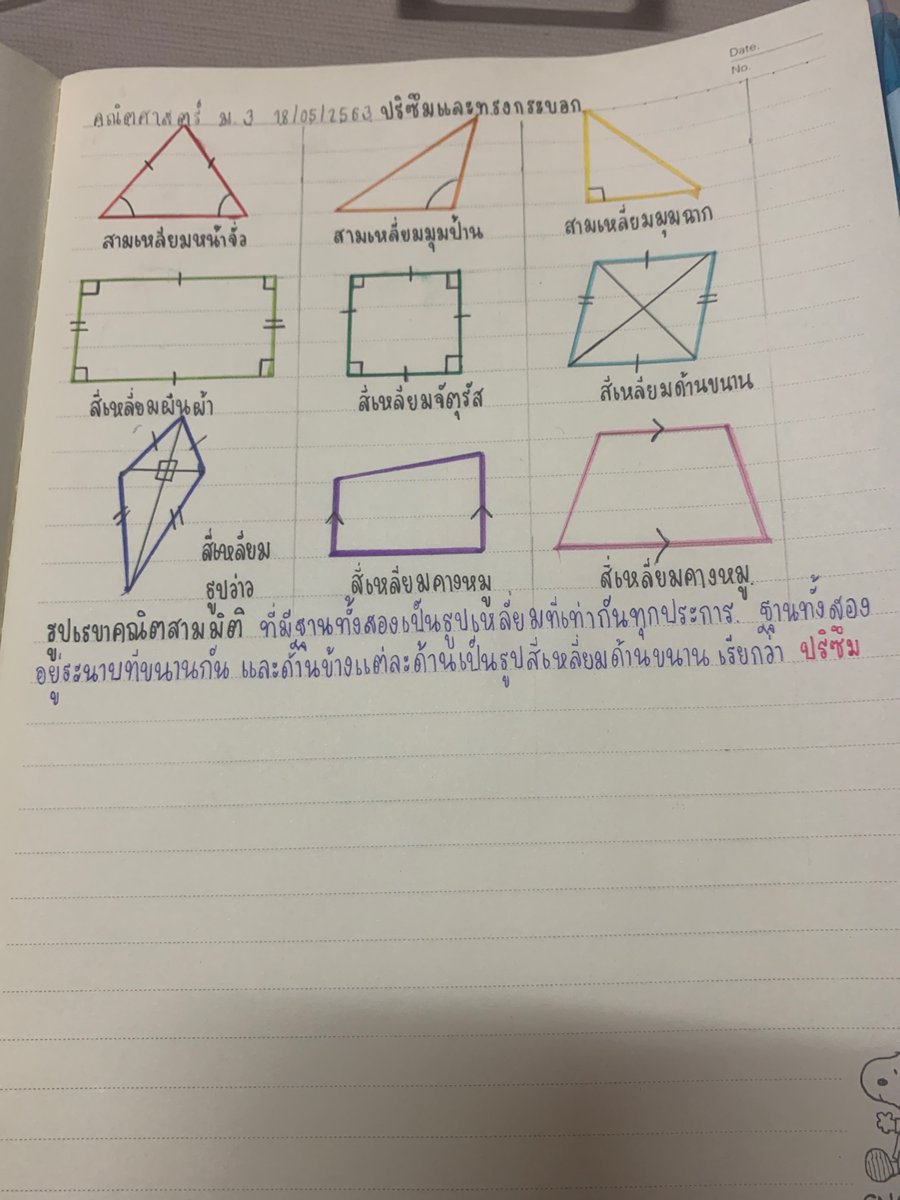 Date.
No.
คณิตศาสตร์ ม.3 18/05/2563 ปริซึมและทรงกระบอก
สามเหลี่ยมหน้าจั่ว
สามเหลี่ยมมุมป้าน
สามเหลี่ยมมุมฉาก
สี่เหลี่ยมผืนผ้า
สี่เหลี่ยมจัตุรัส
สี่เหลี่ยมด้านขนาน
สี่เหลี่ยม
รูปว่าว
สี่เหลี่ยมคางหมู
สี่เหลี่ยมคางหมู.
รูปเรขาคณิตสามมิติ ที่มีฐานทั้งสองเป็นรูปเหลี่ยมที่เท่ากันทุกประการ. ฐานทั้งสอง
อยู่ระนาบที่ขนานกัน และด้านข้างแต่ละด้านเป็นรูปสี่เหลี่ยมด้านขนาน เรียกว่า ปริซึม